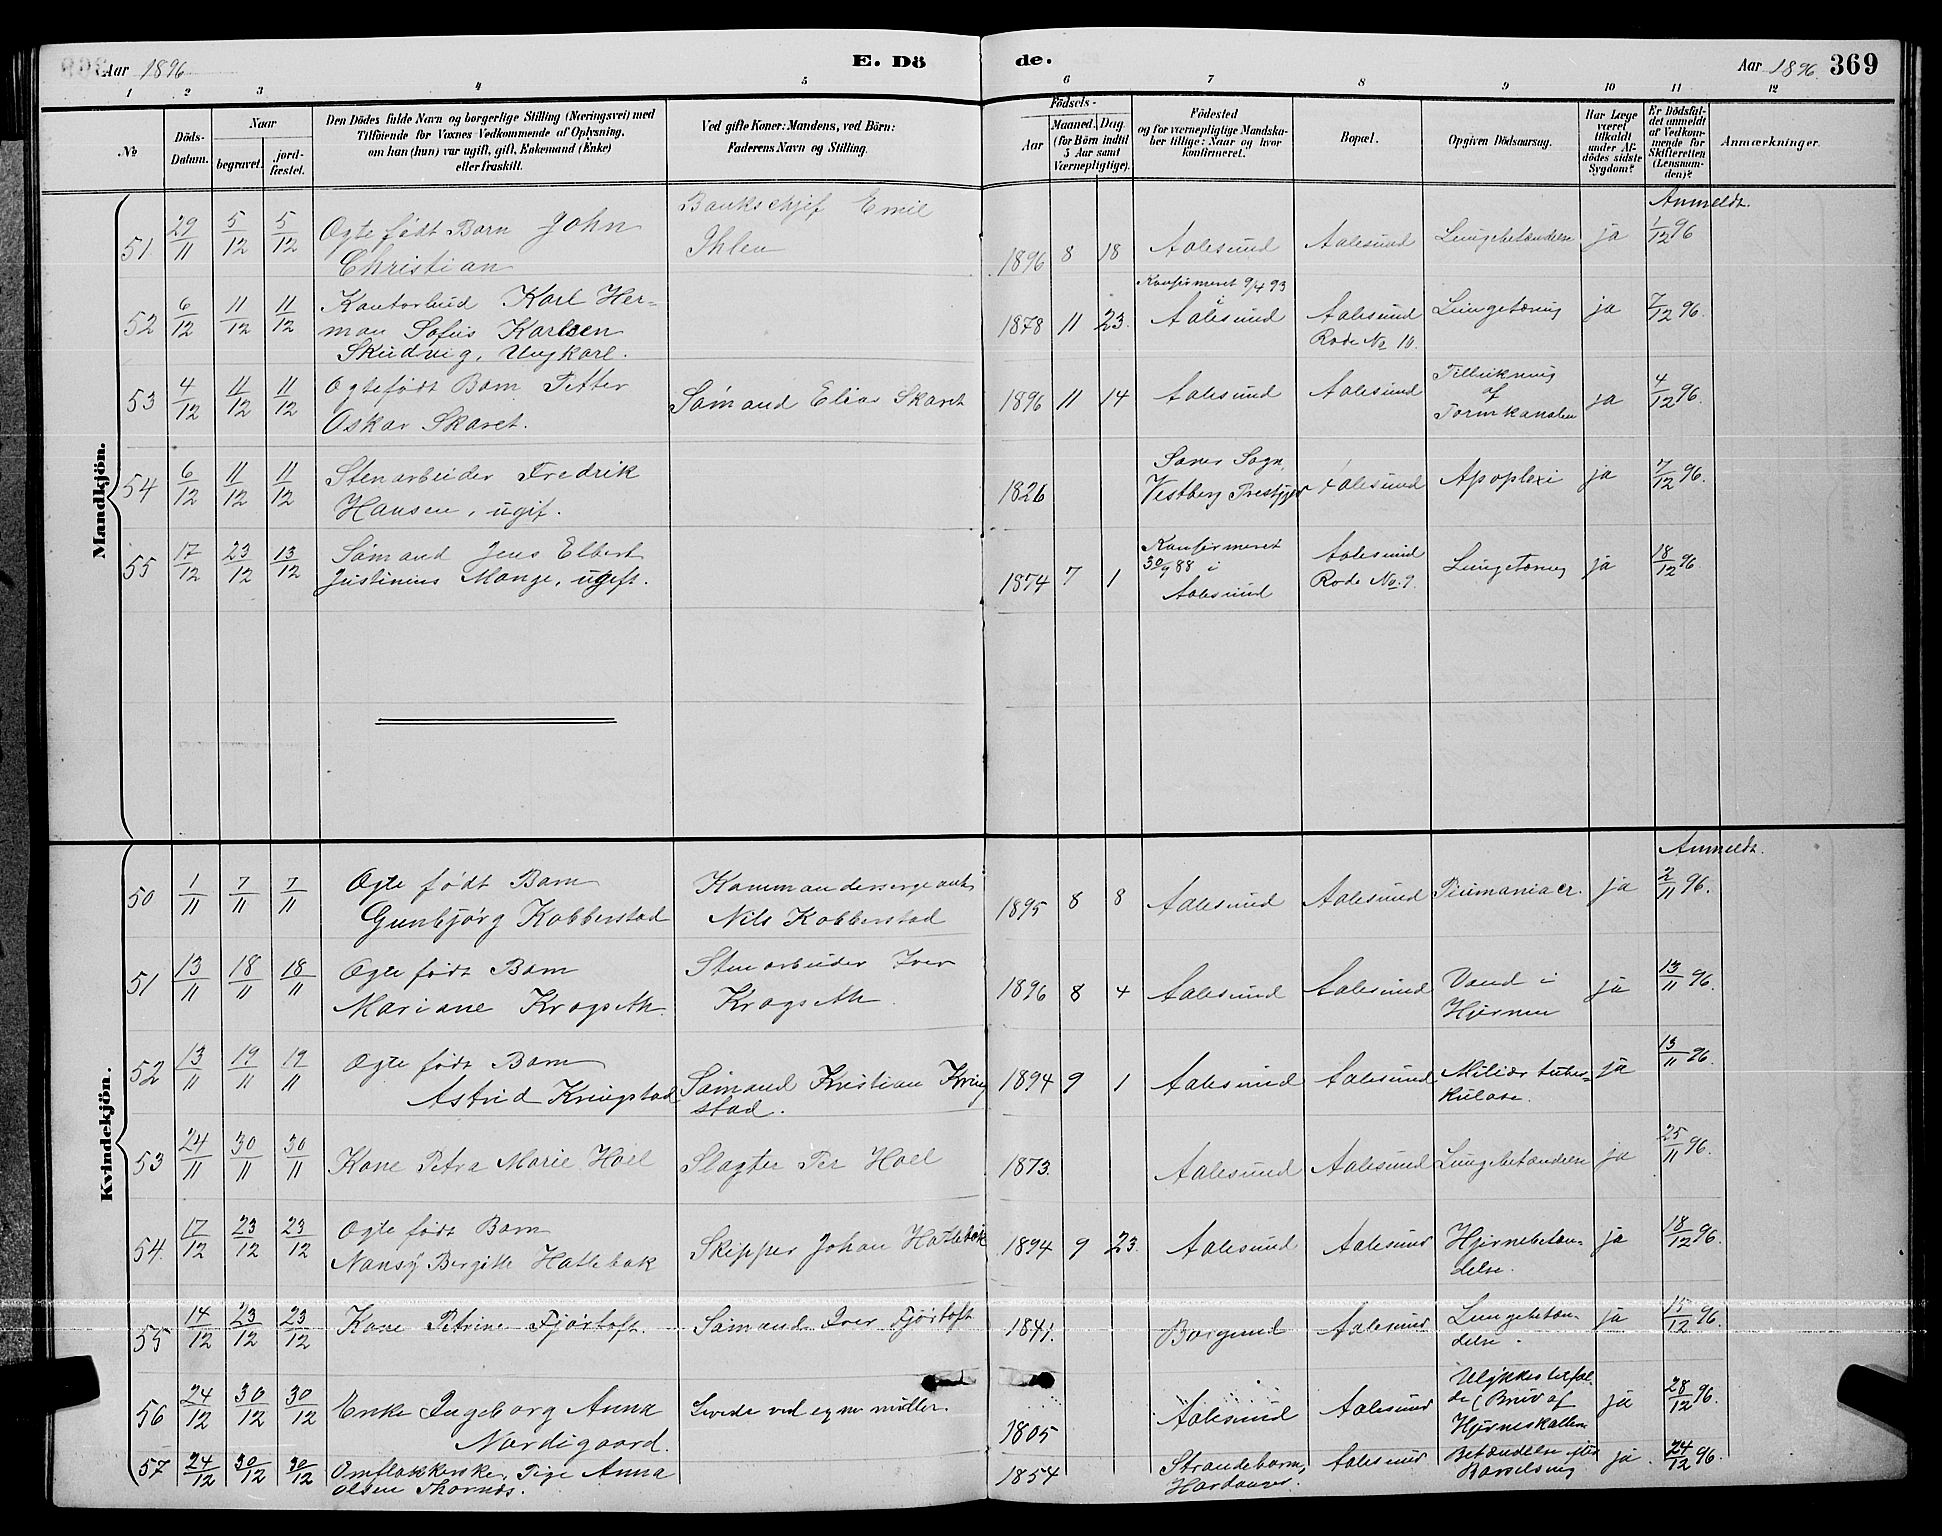 Aar 1896
E. Dö de.
Aar 1896. 369
1 2 3 4 5 6 7 8 9 10 11 12
No
Döds-
Datum.
Naar
begravet.
jord-
fæstet.
Den Dödes fulde Navn og borgerlige Stilling (Næringsvei) med
Tilföiende for Voxnes Vedkommende af Oplysning,
om han (hun) var ugift, gift, Enkemand (Enke)
eller fraskilt.
Ved gifte Koner: Mandens, ved Börn:
Faderens Navn og Stilling.
Födsels-
Aar
Maaned. Dag.
(for Börn indtil
5 Aar samt
Værnepligtige).
Födested
og for værnepligtige Mandska-
ber tillige: Naar og hvor
konfirmeret.
Bopæl.
Opgiven Dödsaarsag.
Har Læge
været
tilkaldt
under Af-
dödes sidste
Sygdom?
Er Dödsfal-
det anmeldt
af Vedkom-
mende for
Skifteretten
(Lensman-
den)?
Anmærkninger.
Mandkjön.
Anmeldt.
51 29/11 5/12 5/12 Ogte født Barn John
Christian
Bankschjef Emil
Ihlen
1896 8 18 Aalesund Aalesund Lungebetændelse ja 1/12 96
52 6/12 11/12 11/12 Kontorbud Karl Her-
man Sofus Karlsen
Skudvig, Ungkarl.
1878 11 23.
Konfirmeret 9/4 93
i
Aalesund
Aalesund
Rode No 10.
Lungetæring ja 7/12 96.
53 4/12 11/12 11/12 Ogtefødt Barn Petter
Oskar Skaret.
Sømand Elias Skaret
1896 11 14 Aalesund Aalesund
Tillukning
af
Tarmkanalen
ja 4/12 96.
54 6/12 11/12 11/12 Stenarbeider Fredrik
Hansen, ugif.
1826
Soner Sogn,
Vestby Prestgjd
Aalesund Apoplexi ja 7/12 96.
55 17/12 23/12 13/12 Sømand Jens Elbert
Justinius Mange, ugift.
1874 7 1
Konfirmeret
30/9 88 i
Aalesund
Aalesund
Rode No. 9.
Lungetæring ja 18/12 96
Kvindekjön.
Anmeldt.
50 1/11 7/11 7/11 Ogte født Barn
Gunbjørg Kobberstad
Kommandersergeant
Nils Kobberstad
1895 8 8 Aalesund Aalesund ja 2/11 96.
51 13/11 18/11 18/11 Ogte født Barn
Mariane Krogseth.
Stenarbeider Iver
Krogseth.
1896 8 4 Aalesund Aalesund
Vand i
Hjernen
ja 13/11 96.
52 13/11 19/11 19/11 Ogte født Barn
Astrid Kringstad
Sømand Kristian Kring
stad.
1894 9 1 Aalesund Aalesund
Miliær tuber-
kulose.
ja 13/11 96.
53 24/11 30/11 30/11 Kone Petra Marie Hoel
Slagter Per Hoel
1873. Aalesund Aalesund Lungebetændelse ja 25/11 96.
54. 17/12 23/12 23/12 Ogte født Barn
Nansy Bergitte Hatlebak
Skipper Johan Hatlebak
1894 9 23. Aalesund Aalesund
Hjernebetæn-
delse.
ja 18/12 96.
55 14/12 23/12 23/12 Kone Petrine Fjørtoft.
Sømand Iver Fjørtoft
1841. Borgund Aalesund
Lungebetæn-
delse.
ja 15/12 96.
56 24/12 30/12 30/12 Enke Ingeborg Anna
Nordigaard.
Levede ved egne midler.
1805 Aalesund Aalesund
Ulykkestilfæl-
de (Brud af
Hjerneskallen
ja 28/12 96.
57 24/12 30/12 30/12 Omflakkerske, Pige Anna
Olsen Thornæs.
1854
Strandebarm,
Hardanger.
Aalesund
Betændelse efter
Barselseng
ja. 24/12 96.